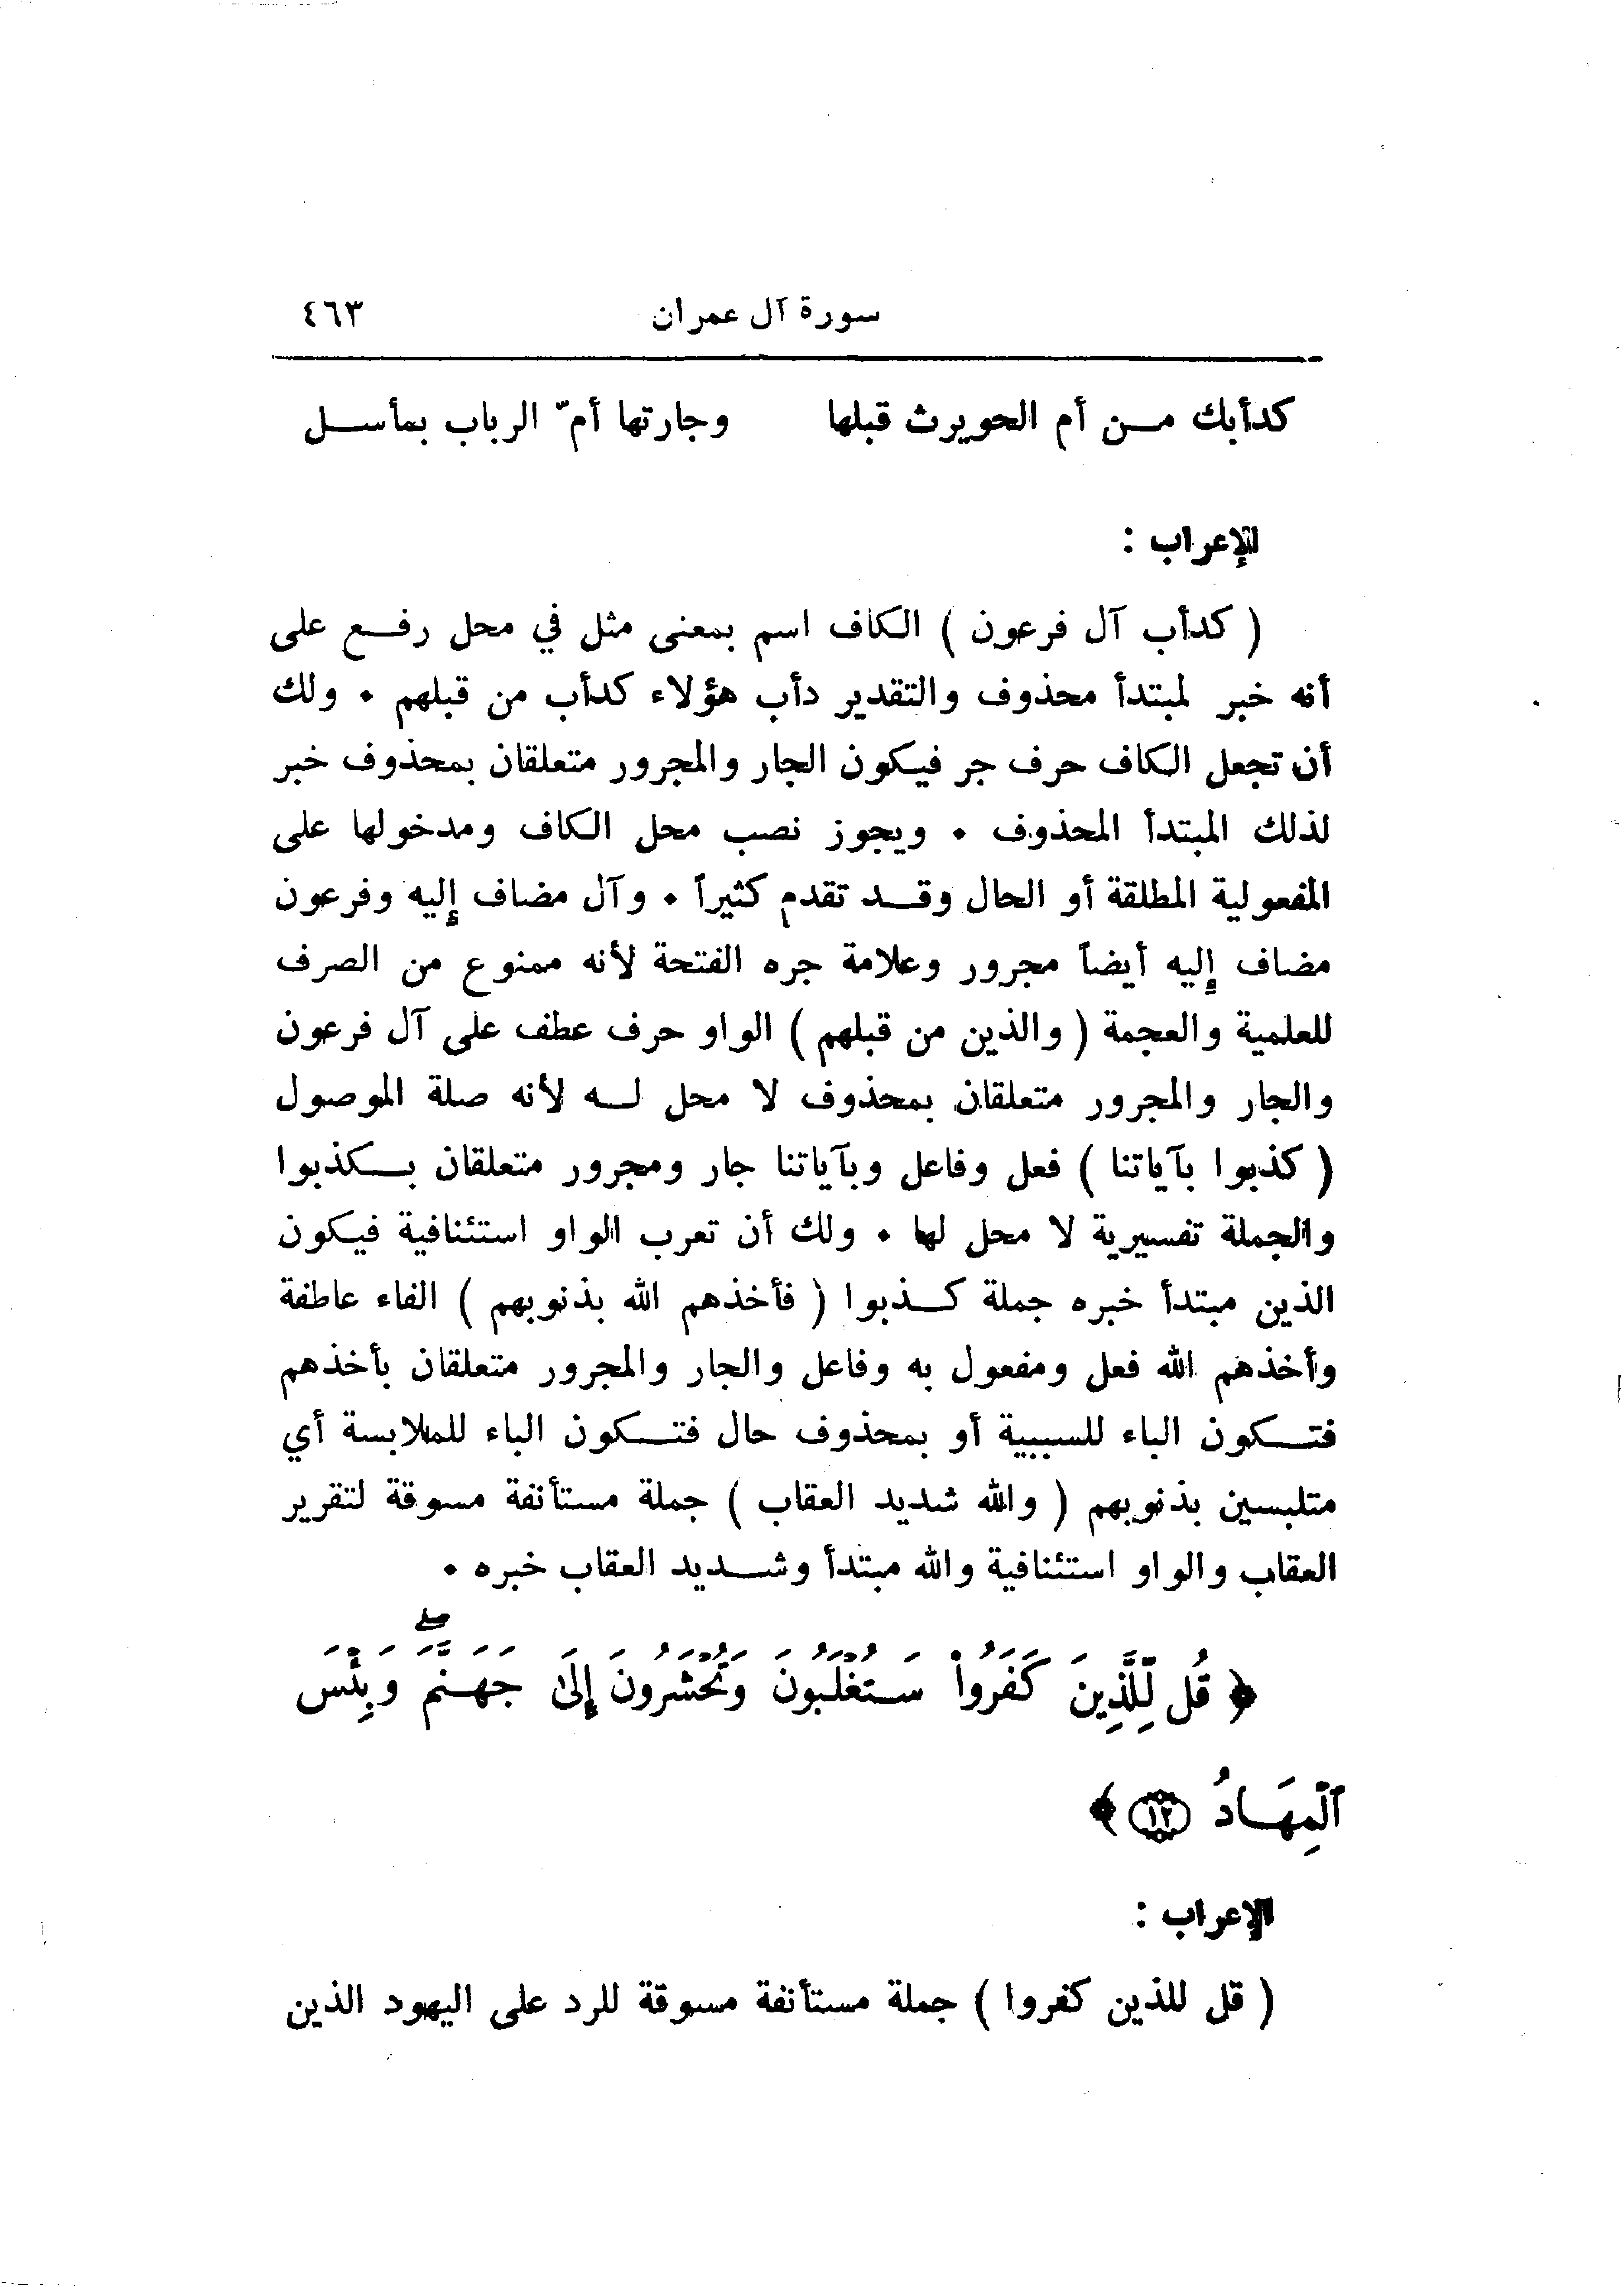 سورة آل عمران ٤٦٣
كدأبك مـن أم الحويرث قبلها وجارتها أمّ الرباب بمأسـل
الإعراب :
( كدأب آل فرعون ) الكاف اسم بمعنى مثل في محل رفـع على
أنه خبر لمبتدأ محذوف والتقدير دأب هؤلاء كدأب من قبلهم . ولك
أن تجعل الكاف حرف جر فيكون الجار والمجرور متعلقان بمحذوف خبر
لذلك المبتدأ المحذوف . ويجوز نصب محل الكاف ومدخولها على
المفعولية المطلقة أو الحال وقـد تقدم كثيراً . وآل مضاف إليه وفرعون
مضاف إليه أيضاً مجرور وعلامة جره الفتحة لأنه ممنوع من الصرف
للعلمية والعجمة ( والذين من قبلهم ) الواو حرف عطف على آل فرعون
والجار والمجرور متعلقان بمحذوف لا محل لـه لأنه صلة الموصول
( كذبوا بآياتنا ) فعل وفاعل وبآياتنا جار ومجرور متعلقان بـكذبوا
والجملة تفسيرية لا محل لها . ولك أن تعرب الواو استئنافية فيكون
الذين مبتدأ خبره جملة كـذبوا ( فأخذهم الله بذنوبهم ) الفاء عاطفة
وأخذهم الله فعل ومفعول به وفاعل والجار والمجرور متعلقان بأخذهم
فتـكون الباء للسببية أو بمحذوف حال فتـكون الباء للملابسة أي
متلبسين بذنوبهم ( والله شديد العقاب ) جملة مستأنفة مسوقة لتقرير
العقاب والواو استئنافية والله مبتدأ وشـديد العقاب خبره .
﴿ قُل لِّلَّذِينَ كَفَرُواْ سَتُغْلَبُونَ وَتُحْشَرُونَ إِلَىٰ جَهَنَّمَۖ وَبِئْسَ
ٱلْمِهَادُ ١٢ ﴾
الإعراب :
( قل للذين كفروا ) جملة مستأنفة مسوقة للرد على اليهود الذين